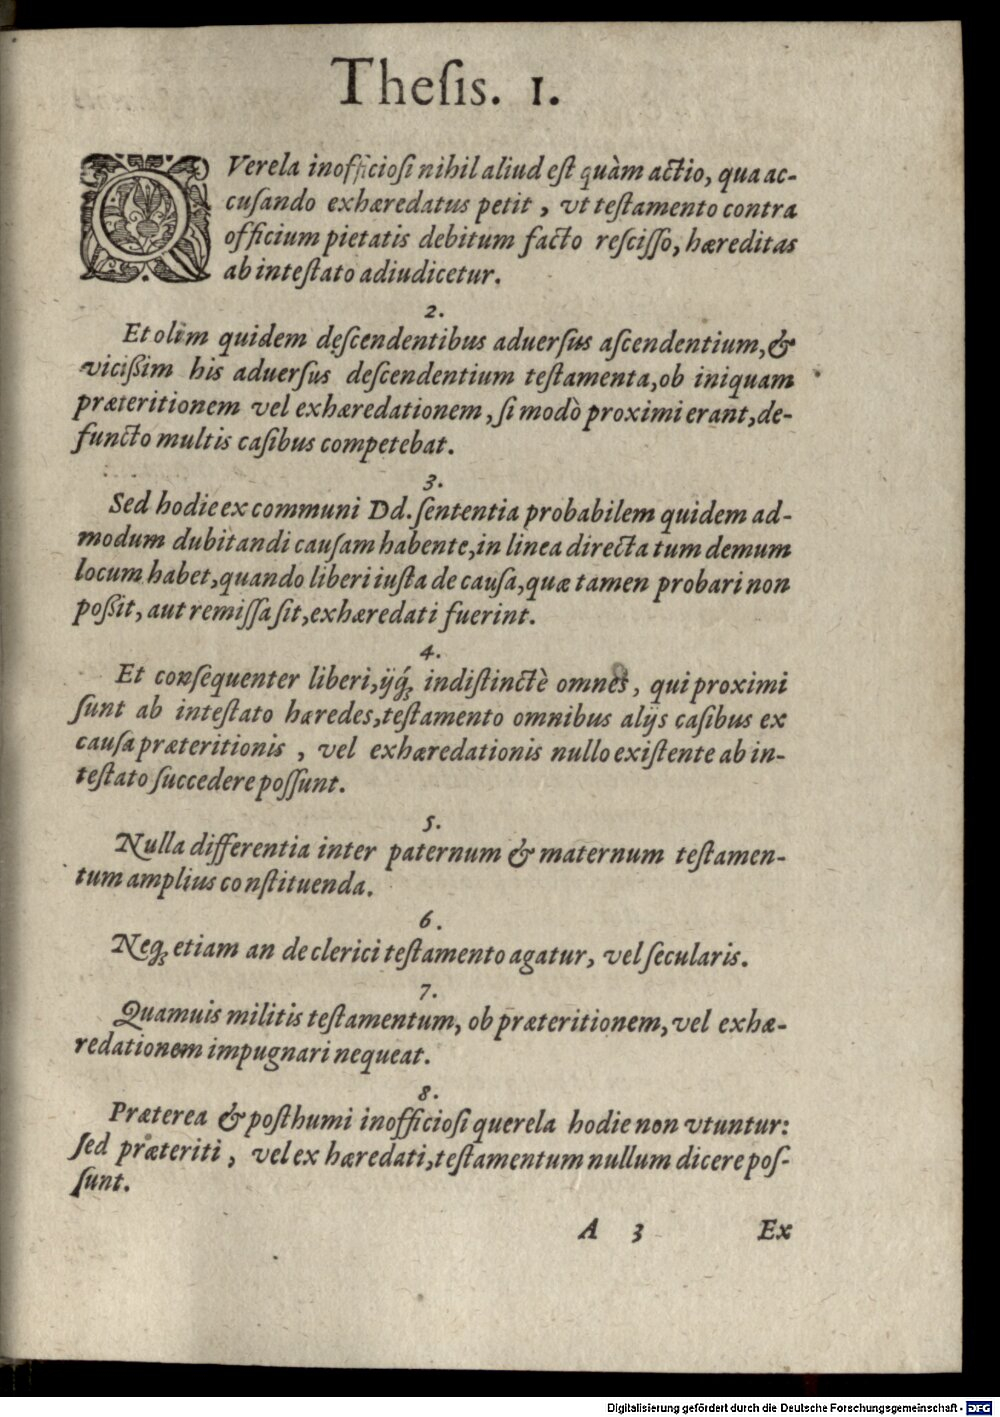 Theſis. 1.
QVerela inofficioſi nihil aliud eſt quàm actio, qua ac-
cuſando exhæredatus petit, vt teſtamento contra
officium pietatis debitum facto reſciſſo, hæreditas
ab inteſtato adiudicetur.
2.
Et olim quidem deſcendentibus aduerſus aſcendentium, &
viciſsim his aduerſus deſcendentium teſtamenta, ob iniquam
præteritionem vel exhæredationem, ſi modò proximi erant, de-
functo multis caſibus competebat.
3.
Sed hodie ex communi Dd. ſententia probabilem quidem ad-
modum dubitandi cauſam habente, in linea directa tum demum
locum habet, quando liberi iuſta de cauſa, quæ tamen probari non
poſsit, aut remiſſa ſit, exhæredati fuerint.
4.
Et conſequenter liberi, ijq́ꝫ indiſtinctè omnes, qui proximi
ſunt ab inteſtato hæredes, teſtamento omnibus alijs caſibus ex
cauſa præteritionis, vel exhæredationis nullo exiſtente ab in-
teſtato ſuccedere poſſunt.
5.
Nulla differentia inter paternum & maternum teſtamen-
tum amplius conſtituenda.
6.
Neqꝫ etiam an de clerici teſtamento agatur, vel ſecularis.
7.
Quamuis militis teſtamentum, ob præteritionem, vel exhæ-
redationem impugnari nequeat.
8.
Præterea & poſthumi inofficioſi querela hodie non vtuntur:
ſed præteriti, vel exhæredati, teſtamentum nullum dicere poſ-
ſunt.
A 3 Ex
Digitalisierung gefördert durch die Deutsche Forschungsgemeinschaft - DFG